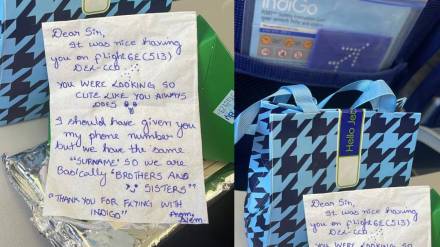 Dear Sir,
It was nice having
you on flight 6E(513)
DEL-CCD.
YOU WERE LOOKING SO
CUTE LIKE YOU ALWAYS
DOES
I should have given you
my phone number
but we have the same
"SURNAME" SO we are
Basically "BROTHERS AND
SISTERS"
"THANK YOU FOR FLYING WITH
INDIGO"
IndiGo
Hello
Dear Sir,
It was nice having
you on flight 6E(513)
DEL-CCD.
YOU WERE LOOKING SO